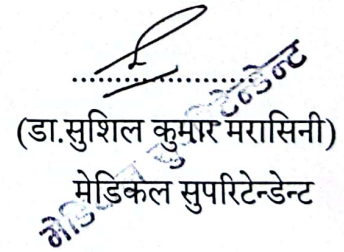 ....................
(डा.सुशिल कुमार मरासिनी)
मेडिकल सुपरिटेन्डेन्ट
मेडिकल सुपरिटेन्डेन्ट